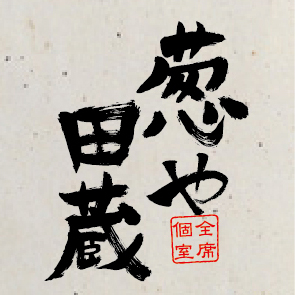 葱や
田蔵
全席
個室